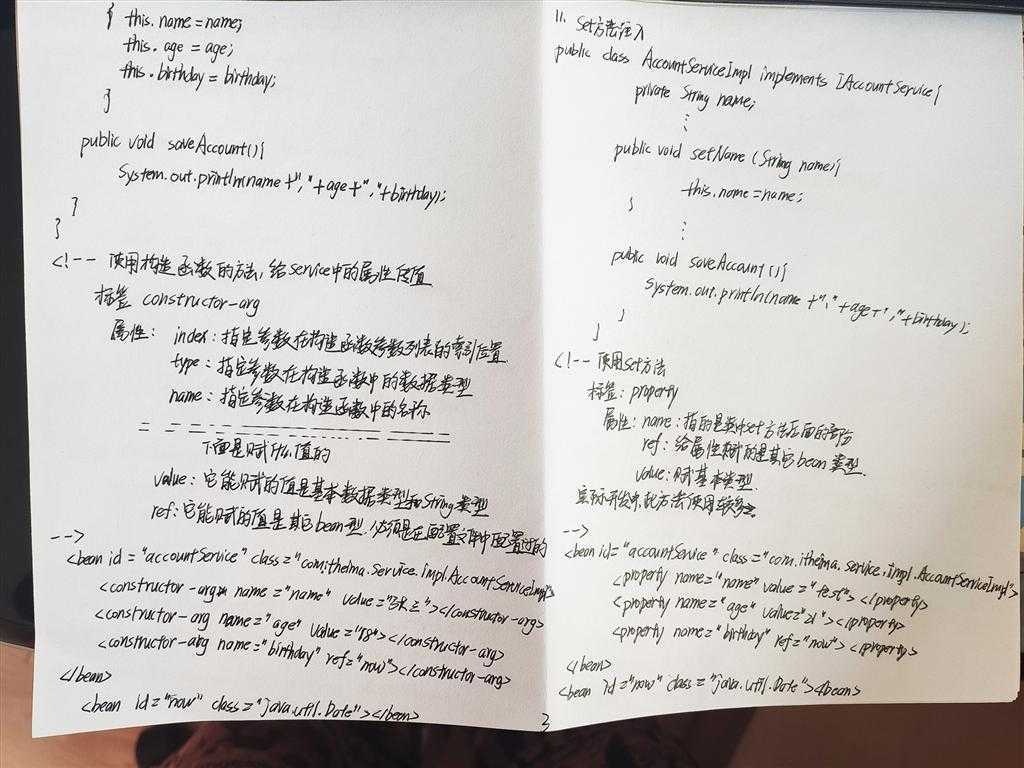 { this.name = name;
this.age = age;
this.birthday = birthday;
}
public void saveAccount(){
System.out.println(name+","+age+","+birthday);
}
}
<!-- 使用构造函数的方法，给service中的属性传值
标签 constructor-arg
属性： index：指定参数在构造函数参数列表的索引位置
type：指定参数在构造函数中的数据类型
name：指定参数在构造函数中的名称
下面是赋什么值的
value：它能赋的值是基本数据类型和String类型
ref：它能赋的值是其它bean型，必须是在配置文件中配置过的
-->
<bean id="accountService" class="com.itheima.service.impl.AccountServiceImpl">
<constructor-arg name="name" value="张三"></constructor-arg>
<constructor-arg name="age" value="18"></constructor-arg>
<constructor-arg name="birthday" ref="now"></constructor-arg>
</bean>
<bean id="now" class="java.util.Date"></bean>
11. set方法注入
public class AccountServiceImpl implements IAccountService{
private String name;
⋮
public void setName (String name){
this.name = name;
}
⋮
public void saveAccount(){
System.out.println(name+","+age+","+birthday);
}
}
<!-- 使用set方法
标签：property
属性：name：指的是类中set方法后面的部分
ref：给属性赋的是其它bean类型
value：赋基本类型
实际开发中，此方法使用较多
-->
<bean id="accountService" class="com.itheima.service.impl.AccountServiceImpl">
<property name="name" value="test"></property>
<property name="age" value="21"></property>
<property name="birthday" ref="now"></property>
</bean>
<bean id="now" class="java.util.Date"></bean>
3